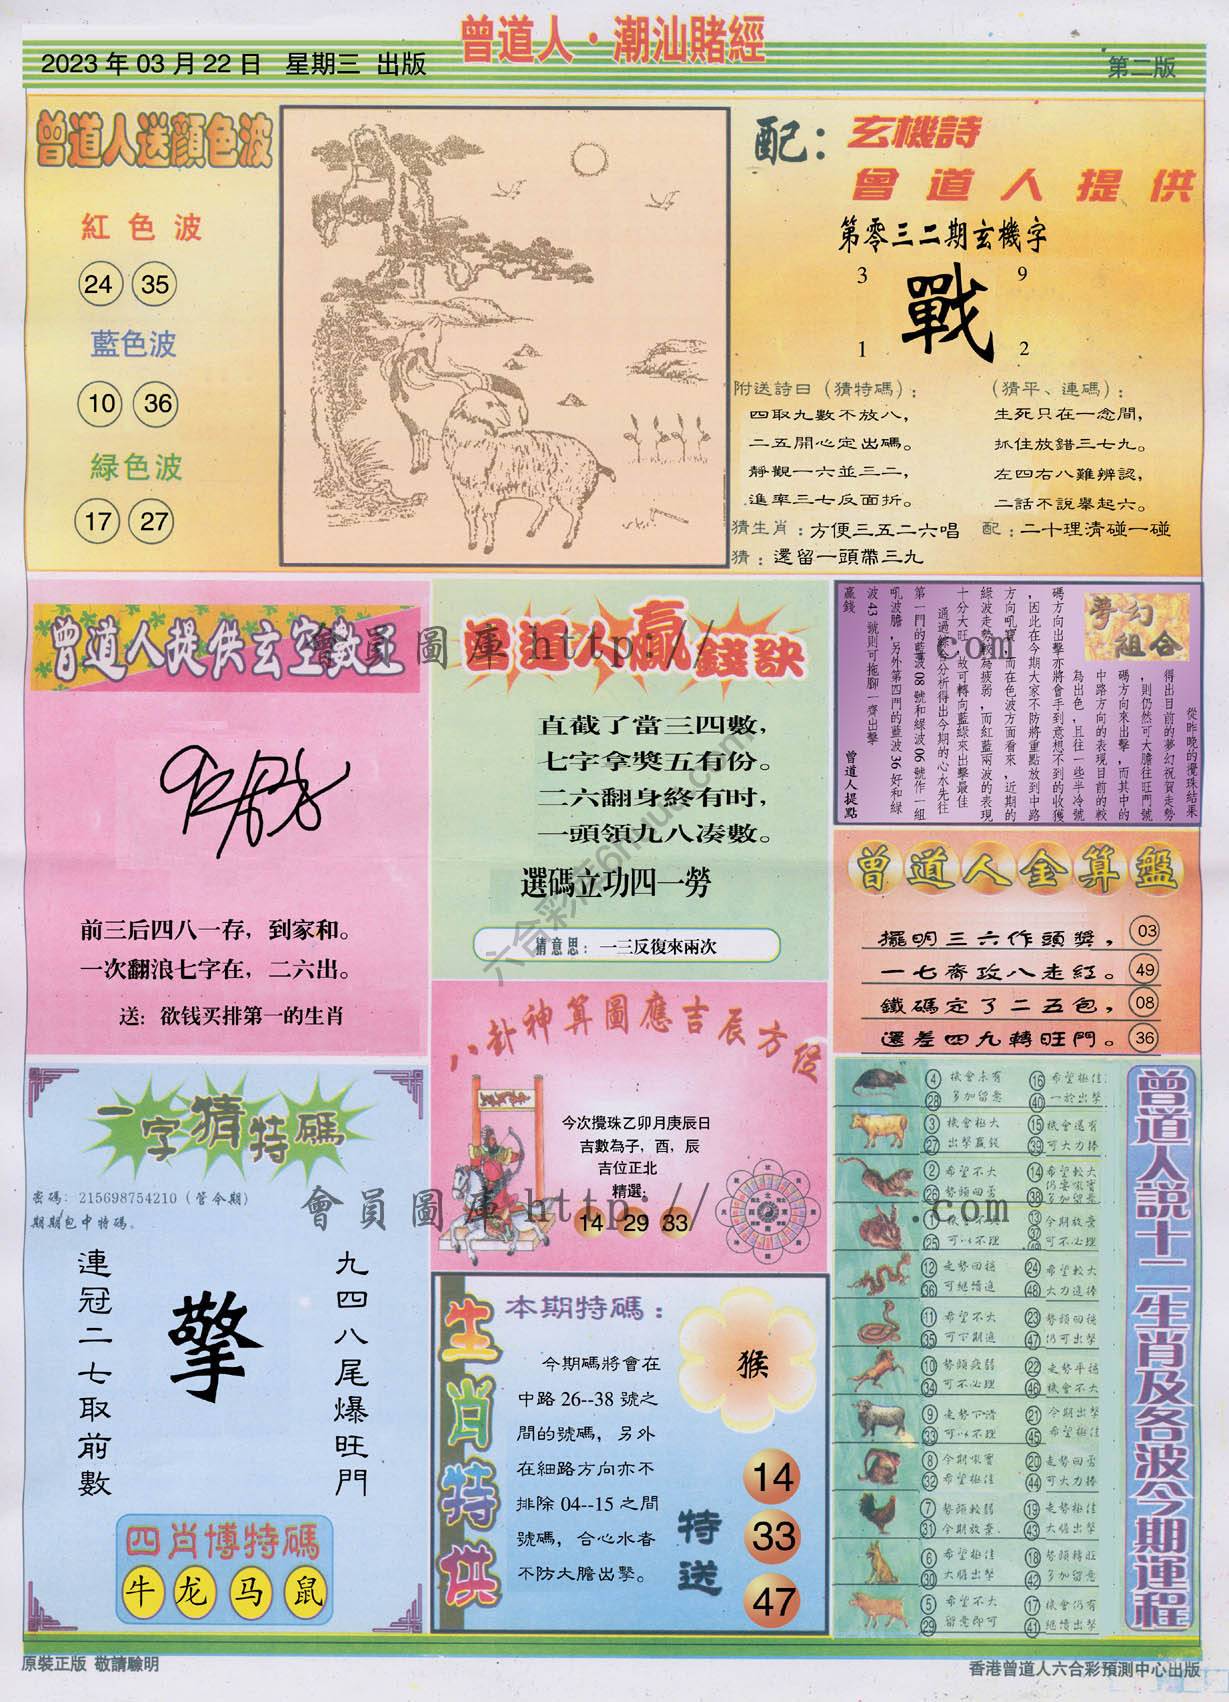 曾道人·潮汕賭經
2023年03月22日 星期三 出版
第二版
曾道人送顏色波
紅色波
24 35
藍色波
10 36
綠色波
17 27
配：玄機詩
曾道人提供
第零三二期玄機字
3 9
戰
1 2
附送詩曰（猜特碼）：
四取九數不放八，
二五開心定出碼。
靜觀一六並三二，
進率三七反面折。
（猜平、連碼）：
生死只在一念間，
抓住放錯三七九。
左四右八難辨認，
二話不說舉起六。
猜生肖：方便三五二六唱
配：二十理清碰一碰
猜：還留一頭帶三九
曾道人提供玄空數王
前三后四八一存，到家和。
一次翻浪七字在，二六出。
送：欲钱买排第一的生肖
曾道人贏錢訣
直截了當三四數，
七字拿獎五有份。
二六翻身終有时，
一頭領九八凑數。
選碼立功四一勞
猜意思：一三反復來兩次
夢幻組合
從昨晚的攪珠結果
得出目前的夢幻祝賀走勢
，則仍然可大膽往旺門號
碼方向來出擊，而其中的
中路方向的表現目前的較
為出色，且往一些半冷號
碼方向出擊亦將會手到意想不到的收獲
，因此在今期大家不防將重點放到中路
方向吼實，而在色波方面看來，近期的
綠波走勢較為疲弱，而紅藍兩波的表現
十分大旺，故可轉向藍綠來出擊最佳
通過綜合分析得出今期的心水先往
第一門的藍波08號和綠波06號作一組
吼波膽，另外第四門的藍波36好和綠
波43號則可拖腳一齊出擊
贏錢
曾道人提點
曾道人金算盤
擺明三六作頭獎， 03
一七齊攻八走紅。 49
鐵碼定了二五包， 08
還差四九轉旺門。 36
八卦神算圖應吉辰方位
今次攪珠乙卯月庚辰日
吉數為子，酉，辰
吉位正北
精選：
14 29 33
一字猜特碼
密碼：215698754210（管令期）
期期包中特碼。
九四八尾爆旺門
擎
連冠二七取前數
四肖博特碼
牛 龙 马 鼠
生肖特供
本期特碼：
今期碼將會在
中路26--38號之
間的號碼，另外
在細路方向亦不
排除04--15之間
號碼，合心水者
不防大膽出擊。
猴
特送
14
33
47
曾道人說十二生肖及各波今期運程
4 28 機會未有 多加留意
16 40 希望極佳 一於出擊
3 27 機會極大 出擊贏錢
15 39 機會還有 可大力捧
2 26 希望不大 勢頭回勇
14 38 希望較大 仍要吼實 多加留意
1 25 可以不理
13 今期放棄 可不必理
12 36 走勢回穩 可繼續追
24 48 希望較大 大力追捧
11 35 希望不大 可下期追
23 47 勢頭回穩 仍可出擊
10 34 勢頭疲弱 可不必理
22 46 走勢平穩 機會不大
9 33 走勢下滑 可以不理
21 45 今期出擊 希望極佳
8 32 今期吼實 希望極佳
20 44 勢頭回勇 可大力捧
7 31 勢頭較弱 今期放棄
19 43 走勢極佳 大膽出擊
6 30 希望極佳 大膽出擊
18 42 勢頭轉旺 多加留意
5 29 希望不大 留意即可
17 41 機會仍有 繼續出擊
原裝正版 敬請驗明
香港曾道人六合彩預測中心出版
會員圖庫 http:// .com
會員圖庫 http:// .com